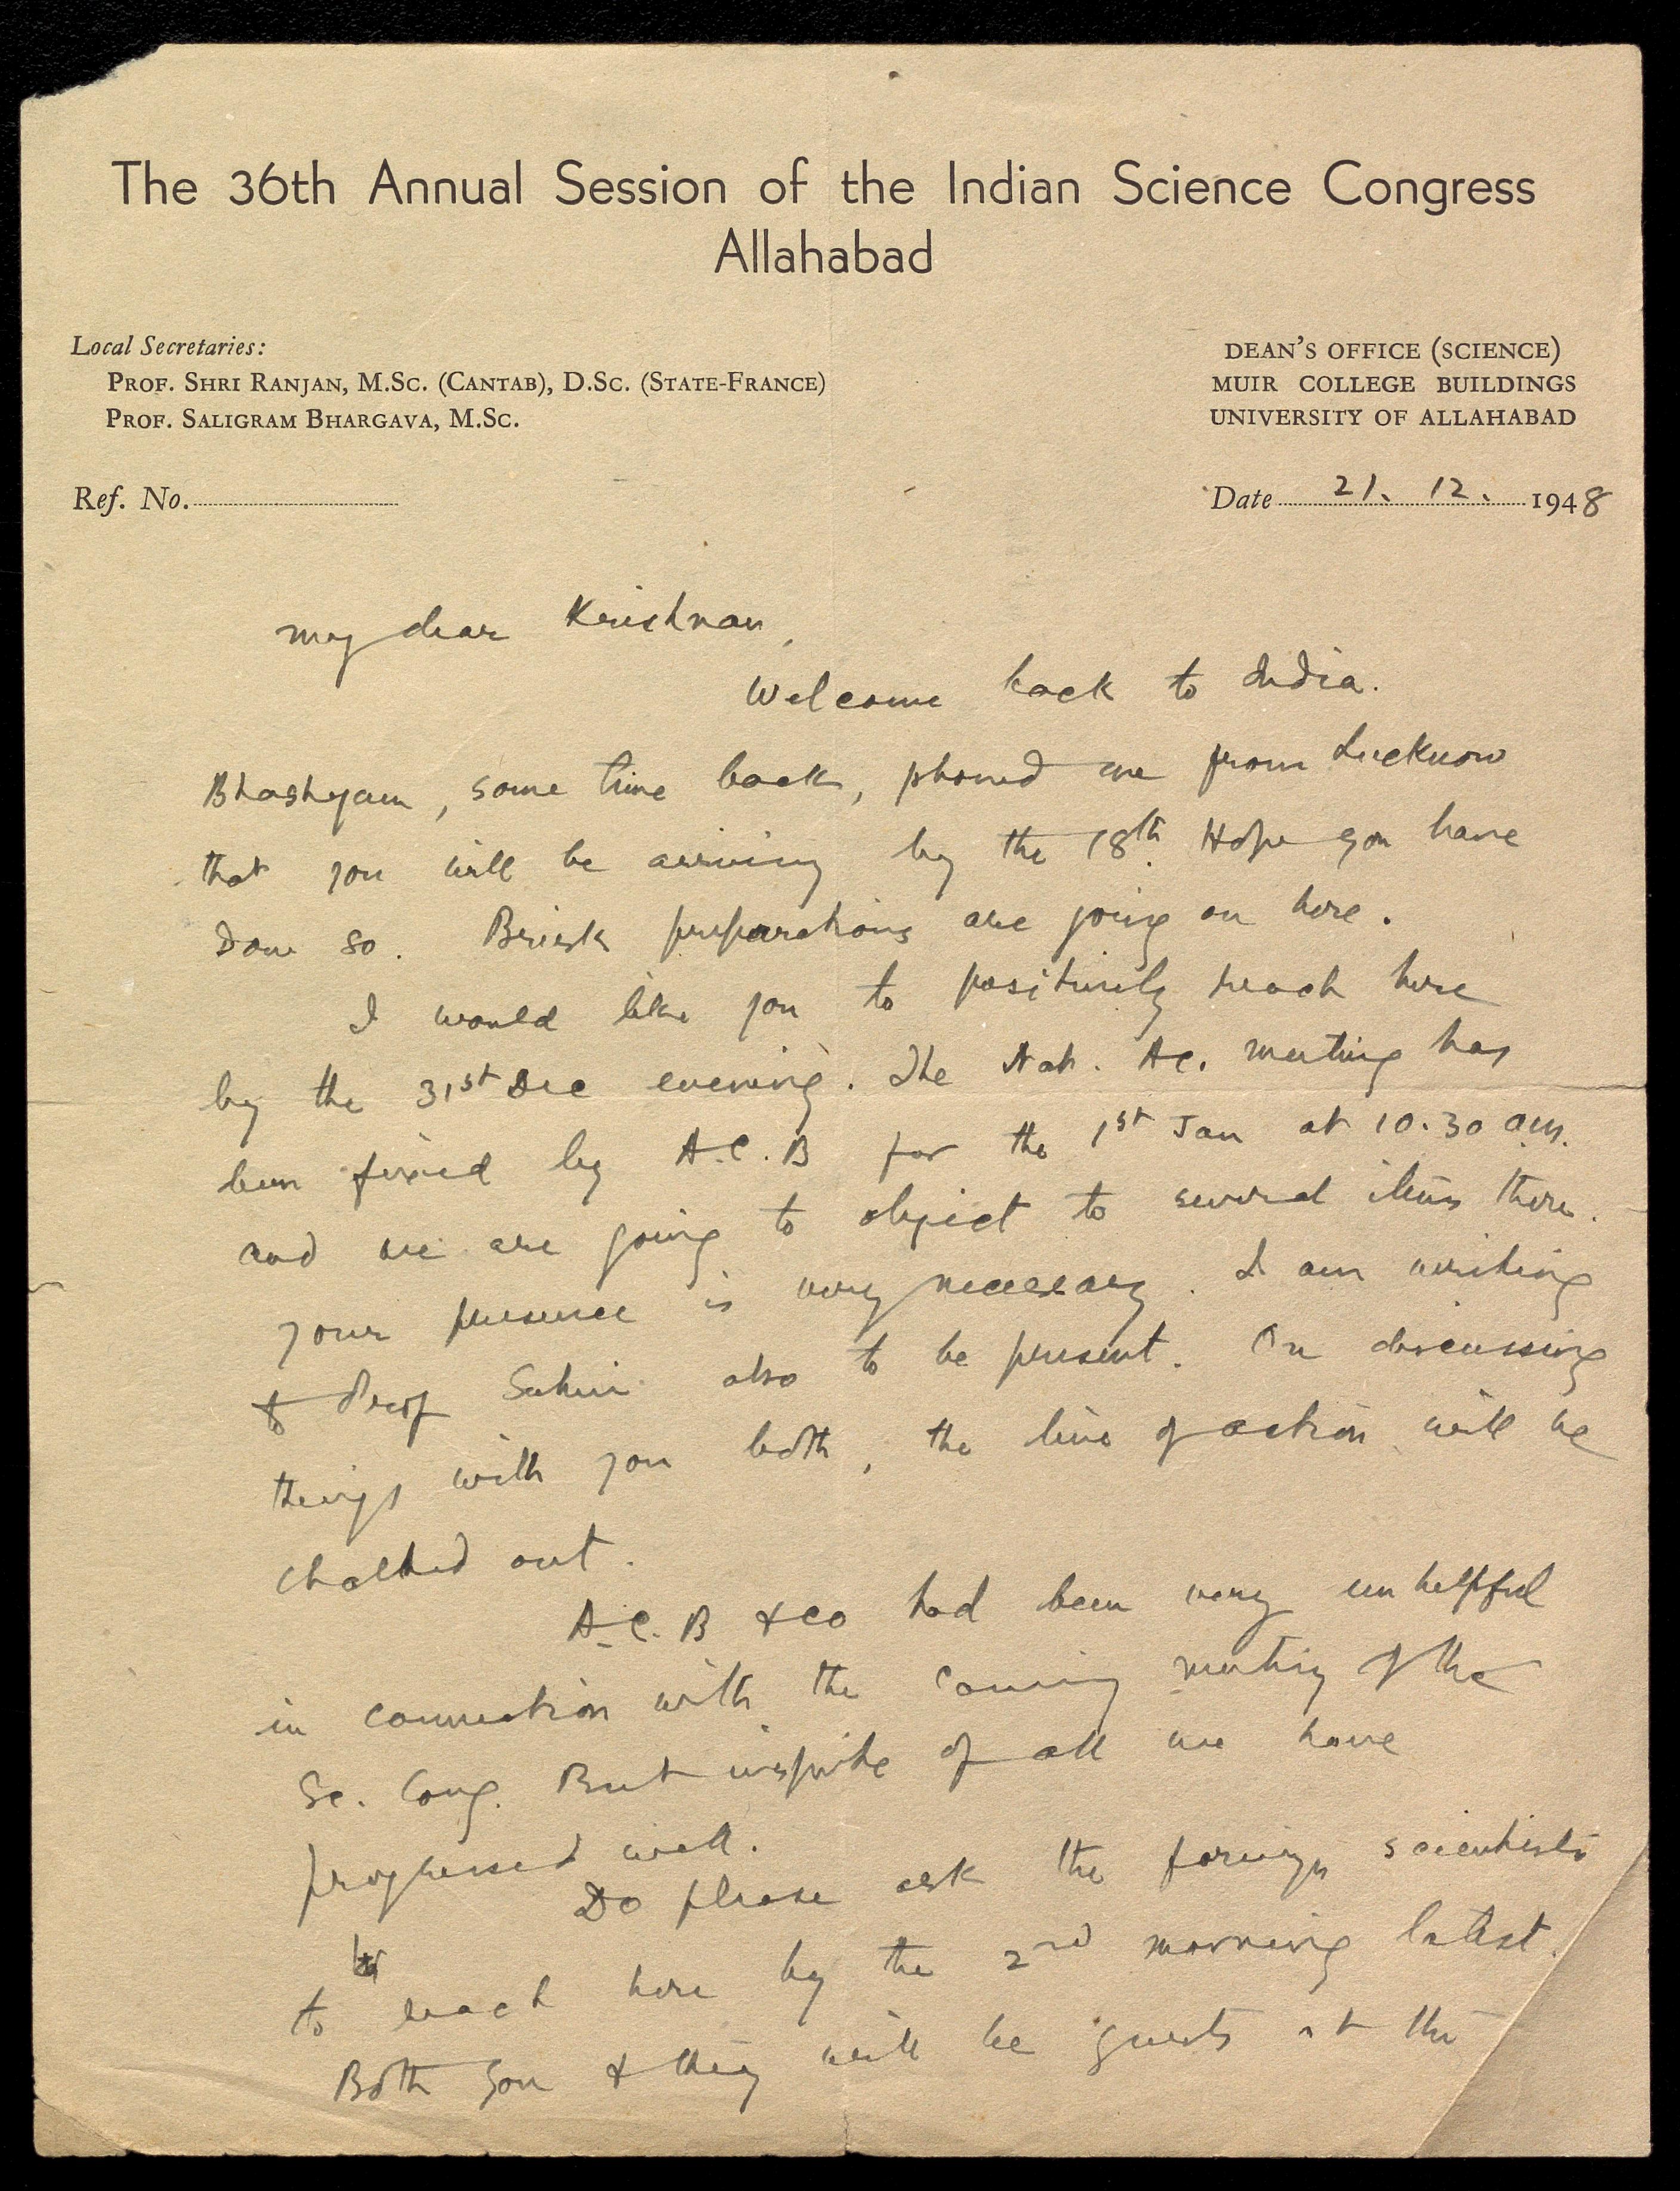 The 36th Annual Session of the Indian Science Congress
Allahabad
Local Secretaries:
PROF. SHRI RANJAN, M.SC. (CANTAB), D.SC. (STATE-FRANCE)
PROF. SALIGRAM BHARGAVA, M.SC.
DEAN'S OFFICE (SCIENCE)
MUIR COLLEGE BUILDINGS
UNIVERSITY OF ALLAHABAD
Ref. No.
Date 21. 12. 1948
My dear Krishnan,
Welcome back to India.
Bhashyam, some time back, phoned me from Lucknow
that you will be arriving by the 18th. Hope you have
done so. Brisk preparations are going on here.
I would like you to positively reach here
by the 31st Dec evening. The Nat. Ac. meeting has
been fixed by A.C.B for the 1st Jan at 10.30 a.m.
and we are going to object to several items there.
your presence is very necessary. I am writing
to Prof Sahni also to be present. On discussing
things with you both, the line of action will be
chalked out.
A.C.B & co had been very unhelpful
in connection with the coming meeting of the
Sc. Cong. But inspite of all we have
progressed well.
Do please ask the foreign scientists
to reach here by the 2nd morning latest.
Both you & they will be guests at the